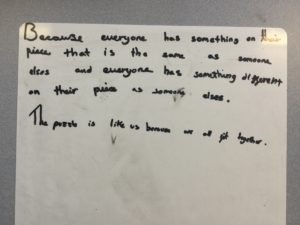 Because everyone has something on their
piece that is the same as someone
elses and everyone has something different
on their piece as someone elses.
The puzzle is like us because we all fit together.